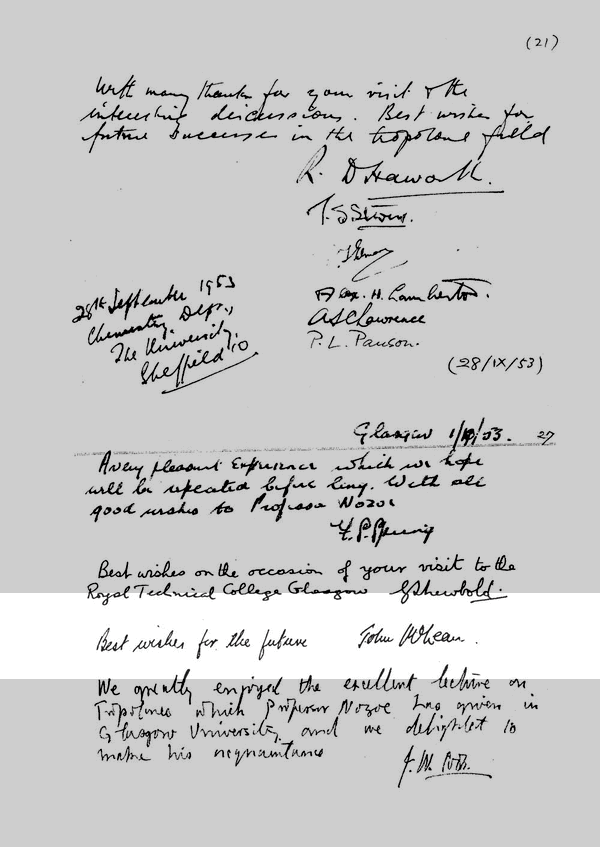 (21)
With many thanks for your visit & the
interesting discussions. Best wishes for
future successes in the tropolone field
R. D Haworth.
T. S. Stevens.
28th September 1953
Chemistry Dept.,
The University,
Sheffield 10
Alex. H. Lamberton.
A S C Lawrence
P. L. Pauson.
(28/IX/53)
Glasgow 1/10/53. 27
A very pleasant Experience which we hope
will be repeated before long. With all
good wishes to Professor Nozoe
F. S. Spring
Best wishes on the occasion of your visit to the
Royal Technical College Glasgow G T Newbold.
Best wishes for the future John McLean.
We greatly enjoyed the excellent lecture on
Tropolones which Professor Nozoe has given in
Glasgow University, and are delighted to
make his acquaintance
J. W. Cook.